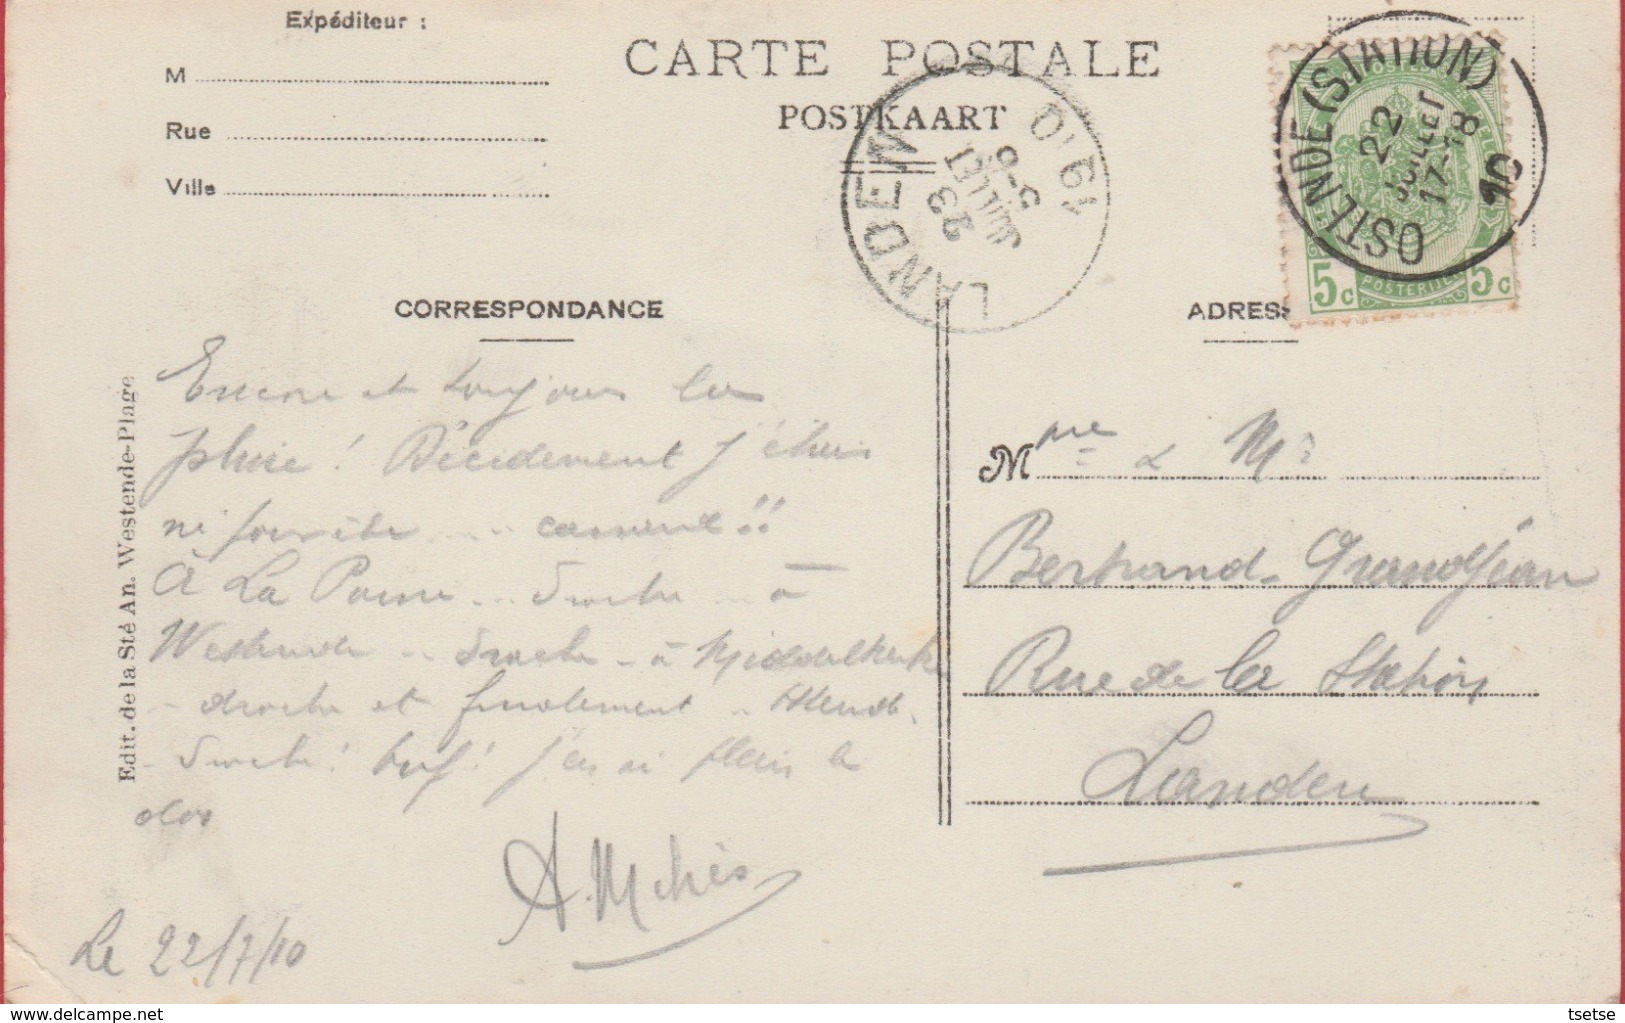 Expéditeur :
M
Rue
Ville
CARTE POSTALE
POSTKAART
OSTENDE (STATION)
22
JUILLET
17-18
10
LANDEN
23
JUILLET
5-6
1910
5c POSTERIJEN 5c
CORRESPONDANCE
ADRES
Edit. de la Sté An. Westende-Plage
Encore et toujours la
pluie ! Décidement j'étais
À La Panne - drache - à
Westende - drache - à Middelkerke
- drache et finalement - Ostende
- drache ! bref ! j'en ai plein le
dos
Le 22/7/10
Mme & Mr
Bertrand-Grandjean
Rue de la Station
Landen
delcampe.net
tsetse